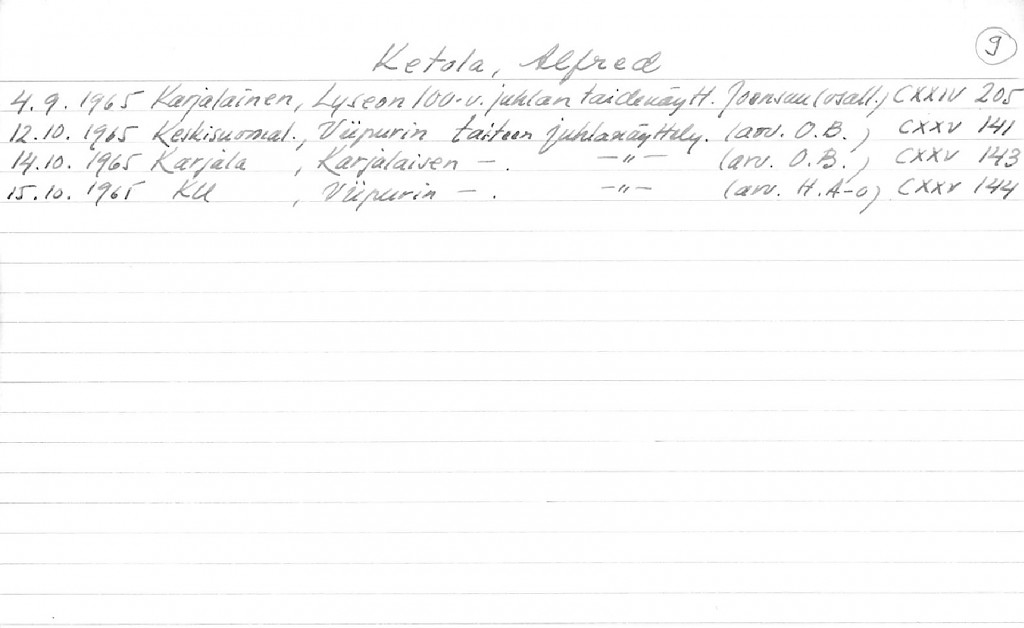 9
Ketola, Alfred
4.9.1965 Karjalainen, Lyseon 100-v. juhlan taidenäytt. Joensuu (osall.) CXXIV 205
12.10.1965 Keskisuomal., Viipurin taiteen juhlanäyttely. (arv. O.B.) CXXV 141
14.10.1965 Karjala, Karjalaisen -. -"- (arv. O.B.) CXXV 143
15.10.1965 KU, Viipurin -. -"- (arv. H.A-o) CXXV 144